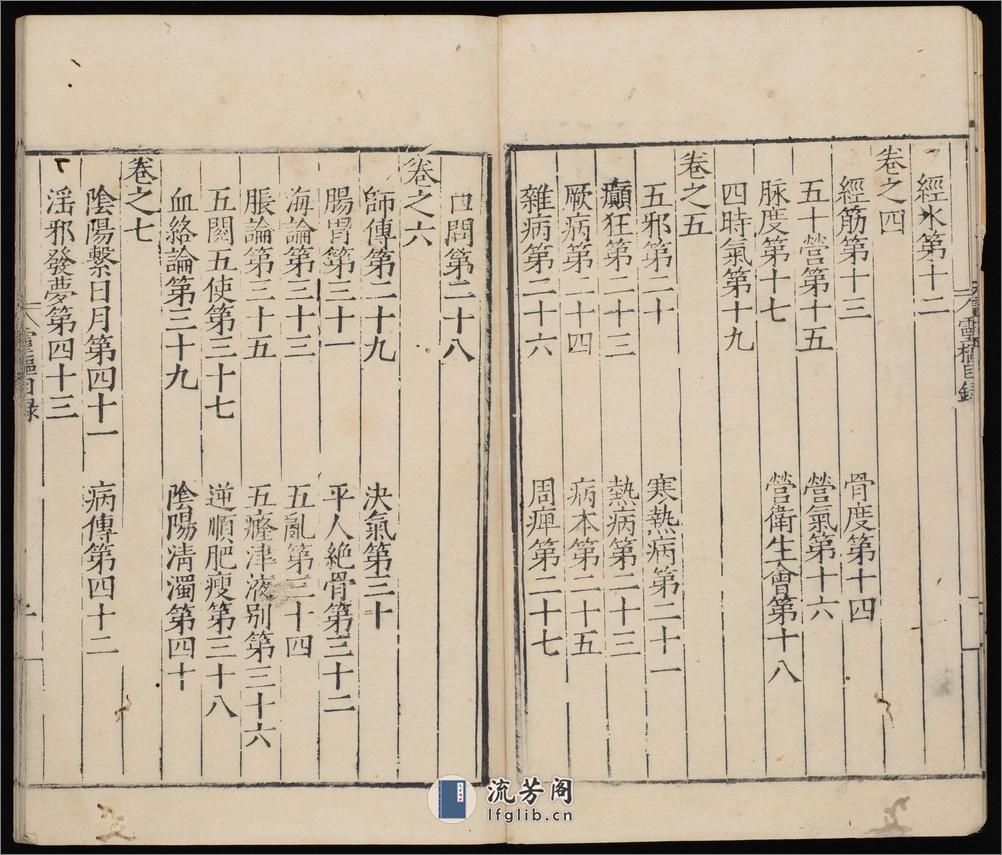 靈樞目錄
經水第十二
卷之四
經筋第十三　骨度第十四
五十營第十五　營氣第十六
脉度第十七　營衛生會第十八
四時氣第十九
卷之五
五邪第二十　寒熱病第二十一
癲狂第二十三　熱病第二十三
厥病第二十四　病本第二十五
雜病第二十六　周痺第二十七
口問第二十八
卷之六
師傳第二十九　決氣第三十
腸胃第三十一　平人絶骨第三十二
海論第三十三　五亂第三十四
脹論第三十五　五癃津液别第三十六
五閱五使第三十七　逆順肥瘦第三十八
血絡論第三十九　陰陽清濁第四十
卷之七
陰陽繫日月第四十一　病傳第四十二
淫邪發夢第四十三
靈樞目録
流芳阁
lfglib.cn